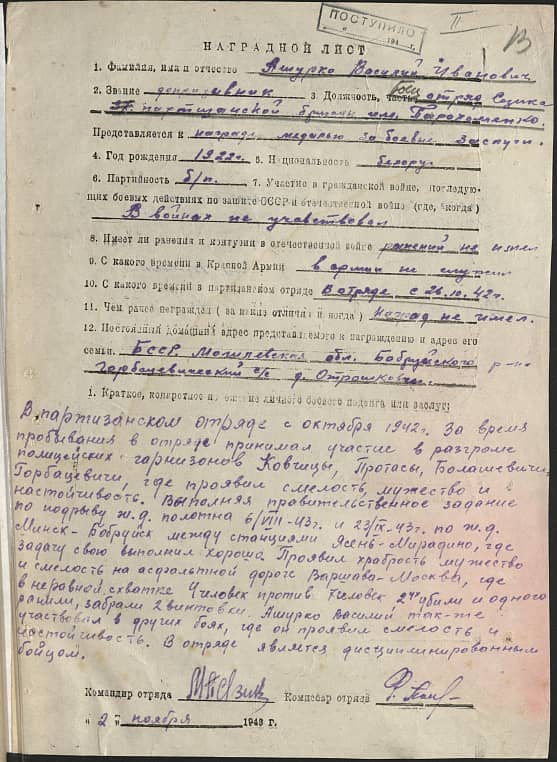 ПОСТУПИЛО
194 г.
II
НАГРАДНОЙ ЛИСТ
1. Фамилия, имя и отчество Ашурко Василий Иванович
2. Звание 3. Должность, часть боец отряд
партизанской бригады им. Пархоменко.
Представляется к награде медалью за боевые заслуги.
4. Год рождения 1922г. 5. Национальность белорус
6. Партийность б/п. 7. Участие в гражданской войне, последую-
щих боевых действиях по защите СССР и отечественной войне (где, когда)
В войнах не учавствовал
8. Имеет ли ранения и контузии в отечественной войне ранений не имел
9. С какого времени в Красной Армии в армии не служил
10. С какого времени в партизанском отряде В отряде с 26.10.42г.
11. Чем ранее награжден (за какие отличия и когда) Наград не имел.
12. Постоянный домашний адрес представляемого к награждению и адрес его
семьи. БССР Могилевская обл. Бобруйского р-на
Горбацевический с/с д.
1. Краткое, конкретное изложение личного боевого подвига или заслуг:
В партизанском отряде с октября 1942г. За время
пробывания в отряде принимал участие в разгроме
полицейских гарнизонов Ковчицы, Протасы, Болашевичи
Горбацевичи, где проявил смелость, мужество и
настойчивость. Выполняя правительственное задание
по подрыву ж.д. полотна 6/VIII-43г. и 23/IX-43г. по ж.д.
Минск-Бобруйск между станциями Ясень-Мирадино, где
задачу свою выполнил хорошо. Проявил храбрость мужество
и смелость на асфальтной дороге Варшава-Москва, где
в неравной схватке человек против человек 2 убили и одного
ранили, забрали 2 винтовки. Ашурко Василий так-же
участвовал в других боях, где он проявил смелость и
настойчивость. В отряде является дисциплинированным
бойцом.
Командир отряда Комиссар отряда
„2„ ноября 1943 г.